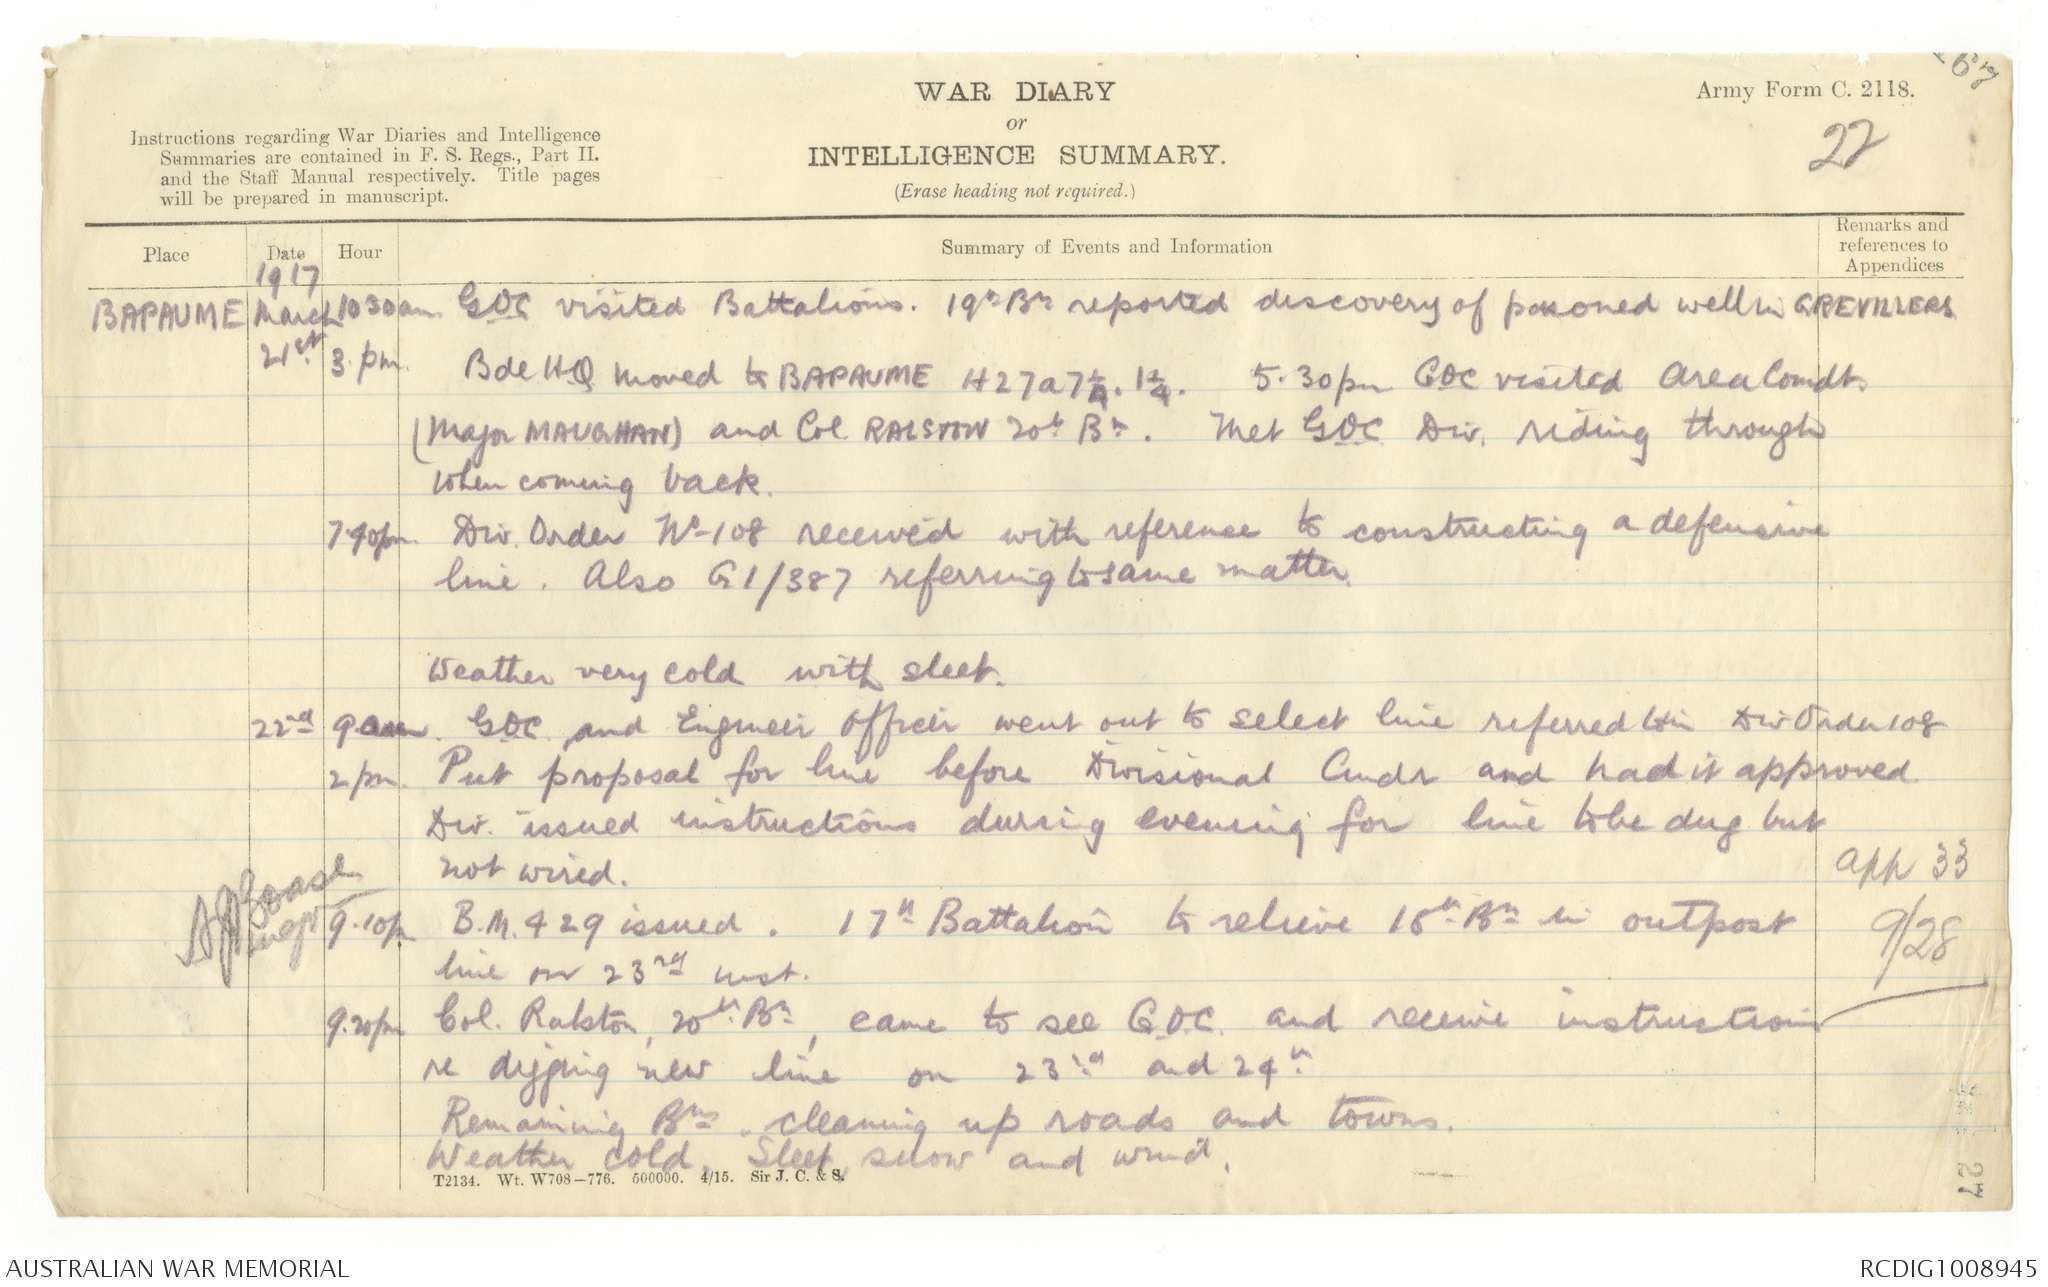 WAR DIARY
or
INTELLIGENCE SUMMARY.
(Erase heading not required.)
Army Form C. 2118.
22
Instructions regarding War Diaries and Intelligence
Summaries are contained in F. S. Regs., Part II.
and the Staff Manual respectively. Title pages
will be prepared in manuscript.
Place Date Hour Summary of Events and Information Remarks and references to Appendices
1917
BAPAUME March 10 30 am. GOC visited Battalions. 19th Bn reported discovery of poisoned well in GREVILLERS
21st 3. pm. Bde H.Q moved to BAPAUME H27a7¼.1¼. 5.30pm GOC visited Area Comdt.
(Major MAUGHAN) and Col. RALSTON 20th Bn. Met GOC Div. riding through
when coming back.
7.40pm. Div. Order No 108 received with reference to constructing a defensive
line. Also G1/387 referring to same matter.
Weather very cold with sleet.
22nd 9 am. GOC and Engineer Officer went out to select line referred to in Div Order 108
2 pm. Put proposal for line before Divisional Cmdr and had it approved.
Div. issued instructions during evening for line to be dug but
not wired.
app 33
9.10pm B.M. 429 issued. 17th Battalion to relieve 18th Bn in outpost
9/28
line on 23rd inst.
9.20pm Col. Ralston, 20th Bn, came to see G.O.C. and receive instructions
re digging new line on 23rd and 24th
Remaining Bns cleaning up roads and towns.
Weather cold. Sleet, snow and wind.
T2134. Wt. W708—776. 500000. 4/15. Sir J. C. & S.
27
AUSTRALIAN WAR MEMORIAL
RCDIG1008945